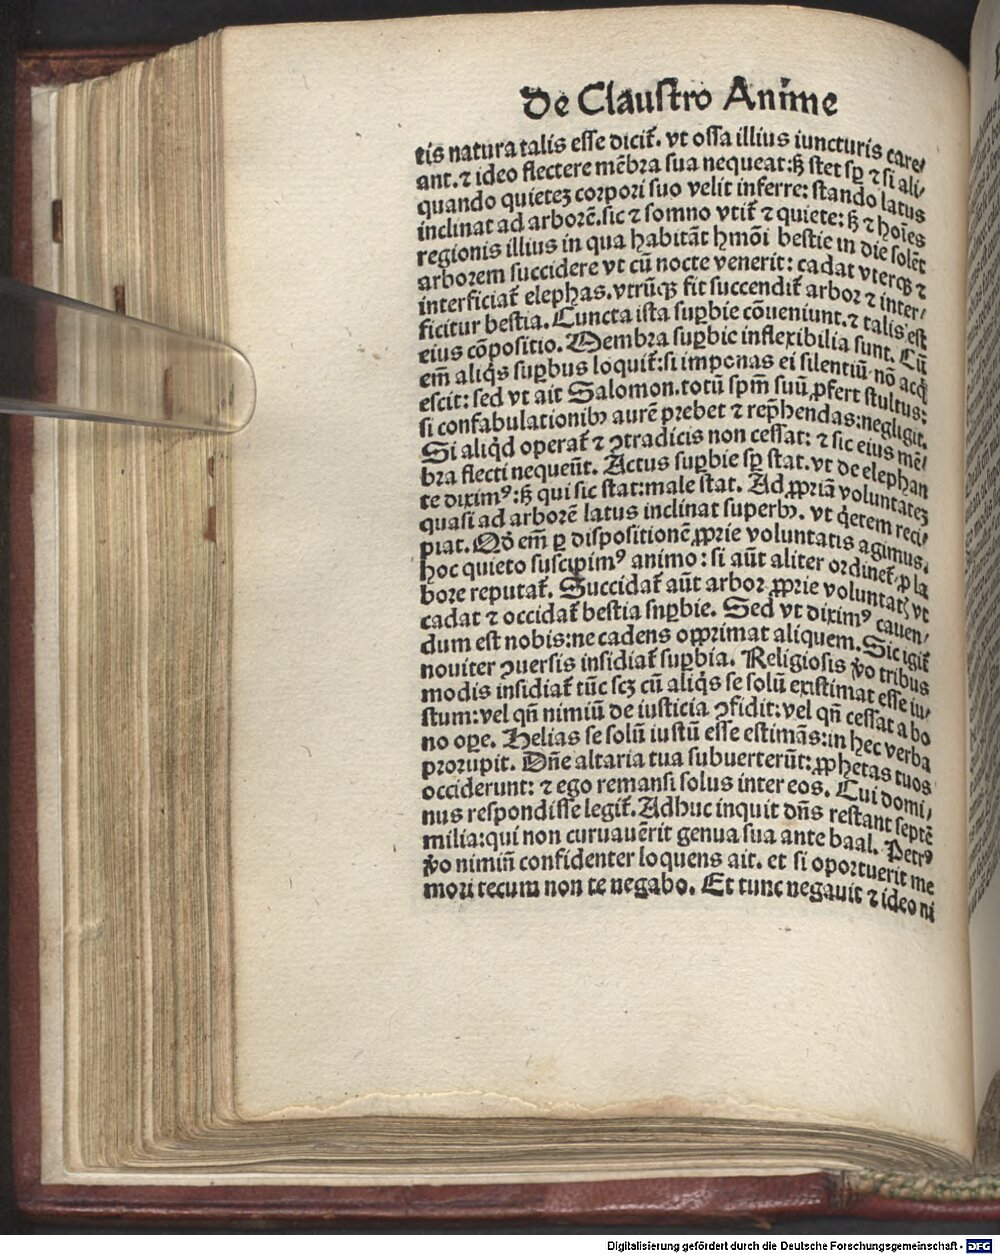 De Claustro Anime
tis natura talis esse dicit᷑. vt ossa illius iuncturis care/
ant. ⁊ ideo flectere mēbra sua nequeat: ß stet sꝑ ⁊ si ali/
quando quietez corpori suo velit inferre: stando latus
inclinat ad arborē. sic ⁊ somno vtit᷑ ⁊ quiete: ß ⁊ hoīes
regionis illius in qua habitāt hmōi bestie in die solēt
arborem succidere vt cū nocte venerit: cadat vterqꝫ ⁊
interficiat᷑ elephas. vtrūqꝫ fit succendit᷑ arbor ⁊ inter/
ficitur bestia. Cuncta ista suꝑbie cōueniunt. ⁊ talis est
eius cōpositio. Membra suꝑbie inflexibilia sunt. Cū
em̄ aliq̇s suꝑbus loquit᷑: si imponas ei silentiū non acq̇
escit: sed vt ait Salomon. totū spm̄ suū ꝓfert stultus:
si confabulationibꝰ aurē prebet ⁊ rep̄hendas: negligit.
Si aliq̇d operat᷑ ⁊ ꝯtradicis non cessat: ⁊ sic eius mē/
bra flecti nequeūt. Actus suꝑbie sꝑ stat. vt de elephan
te diximꝰ: ß qui sic stat: male stat. Ad ꝓpriā voluntatez
quasi ad arborē latus inclinat superbꝰ. vt q̇etem reci/
piat. Qd̄ em̄ ꝑ dispositionē ꝓprie voluntatis agimus,
hoc quieto suscipimꝰ animo: si aūt aliter ordinet᷑ ꝓ la
bore reputat᷑. Succidat᷑ aūt arbor ꝓprie voluntatꝭ vt
cadat ⁊ occidat᷑ bestia snꝑbie. Sed vt diximꝰ cauen/
dum est nobis: ne cadens opprimat aliquem. Sic igit᷑
nouiter ꝯuersis insidiat᷑ suꝑbia. Religiosis v̊o tribus
modis insidiat᷑ tūc scꝫ cū aliq̇s se solū existimat esse iu/
stum: vel qn̄ nimiū de iusticia ꝯfidit: vel qn̄ cessat a bo
no oꝑe. Helias se solū iustū esse estimās: in hec verba
prorupit. Dn̄e altaria tua subuerterūt: ꝓphetas tuos
occiderunt: ⁊ ego remansi solus inter eos. Cui domi/
nus respondisse legit᷑. Adhuc inquit dn̄s restant septē
milia: qui non curuauērit genua sua ante baal. Petrꝰ
v̊o nimiū confidenter loquens ait. et si oportuerit me
mori tecum non te negabo. Et tunc negauit ⁊ ideo ni
Digitalisierung gefördert durch die Deutsche Forschungsgemeinschaft - DFG